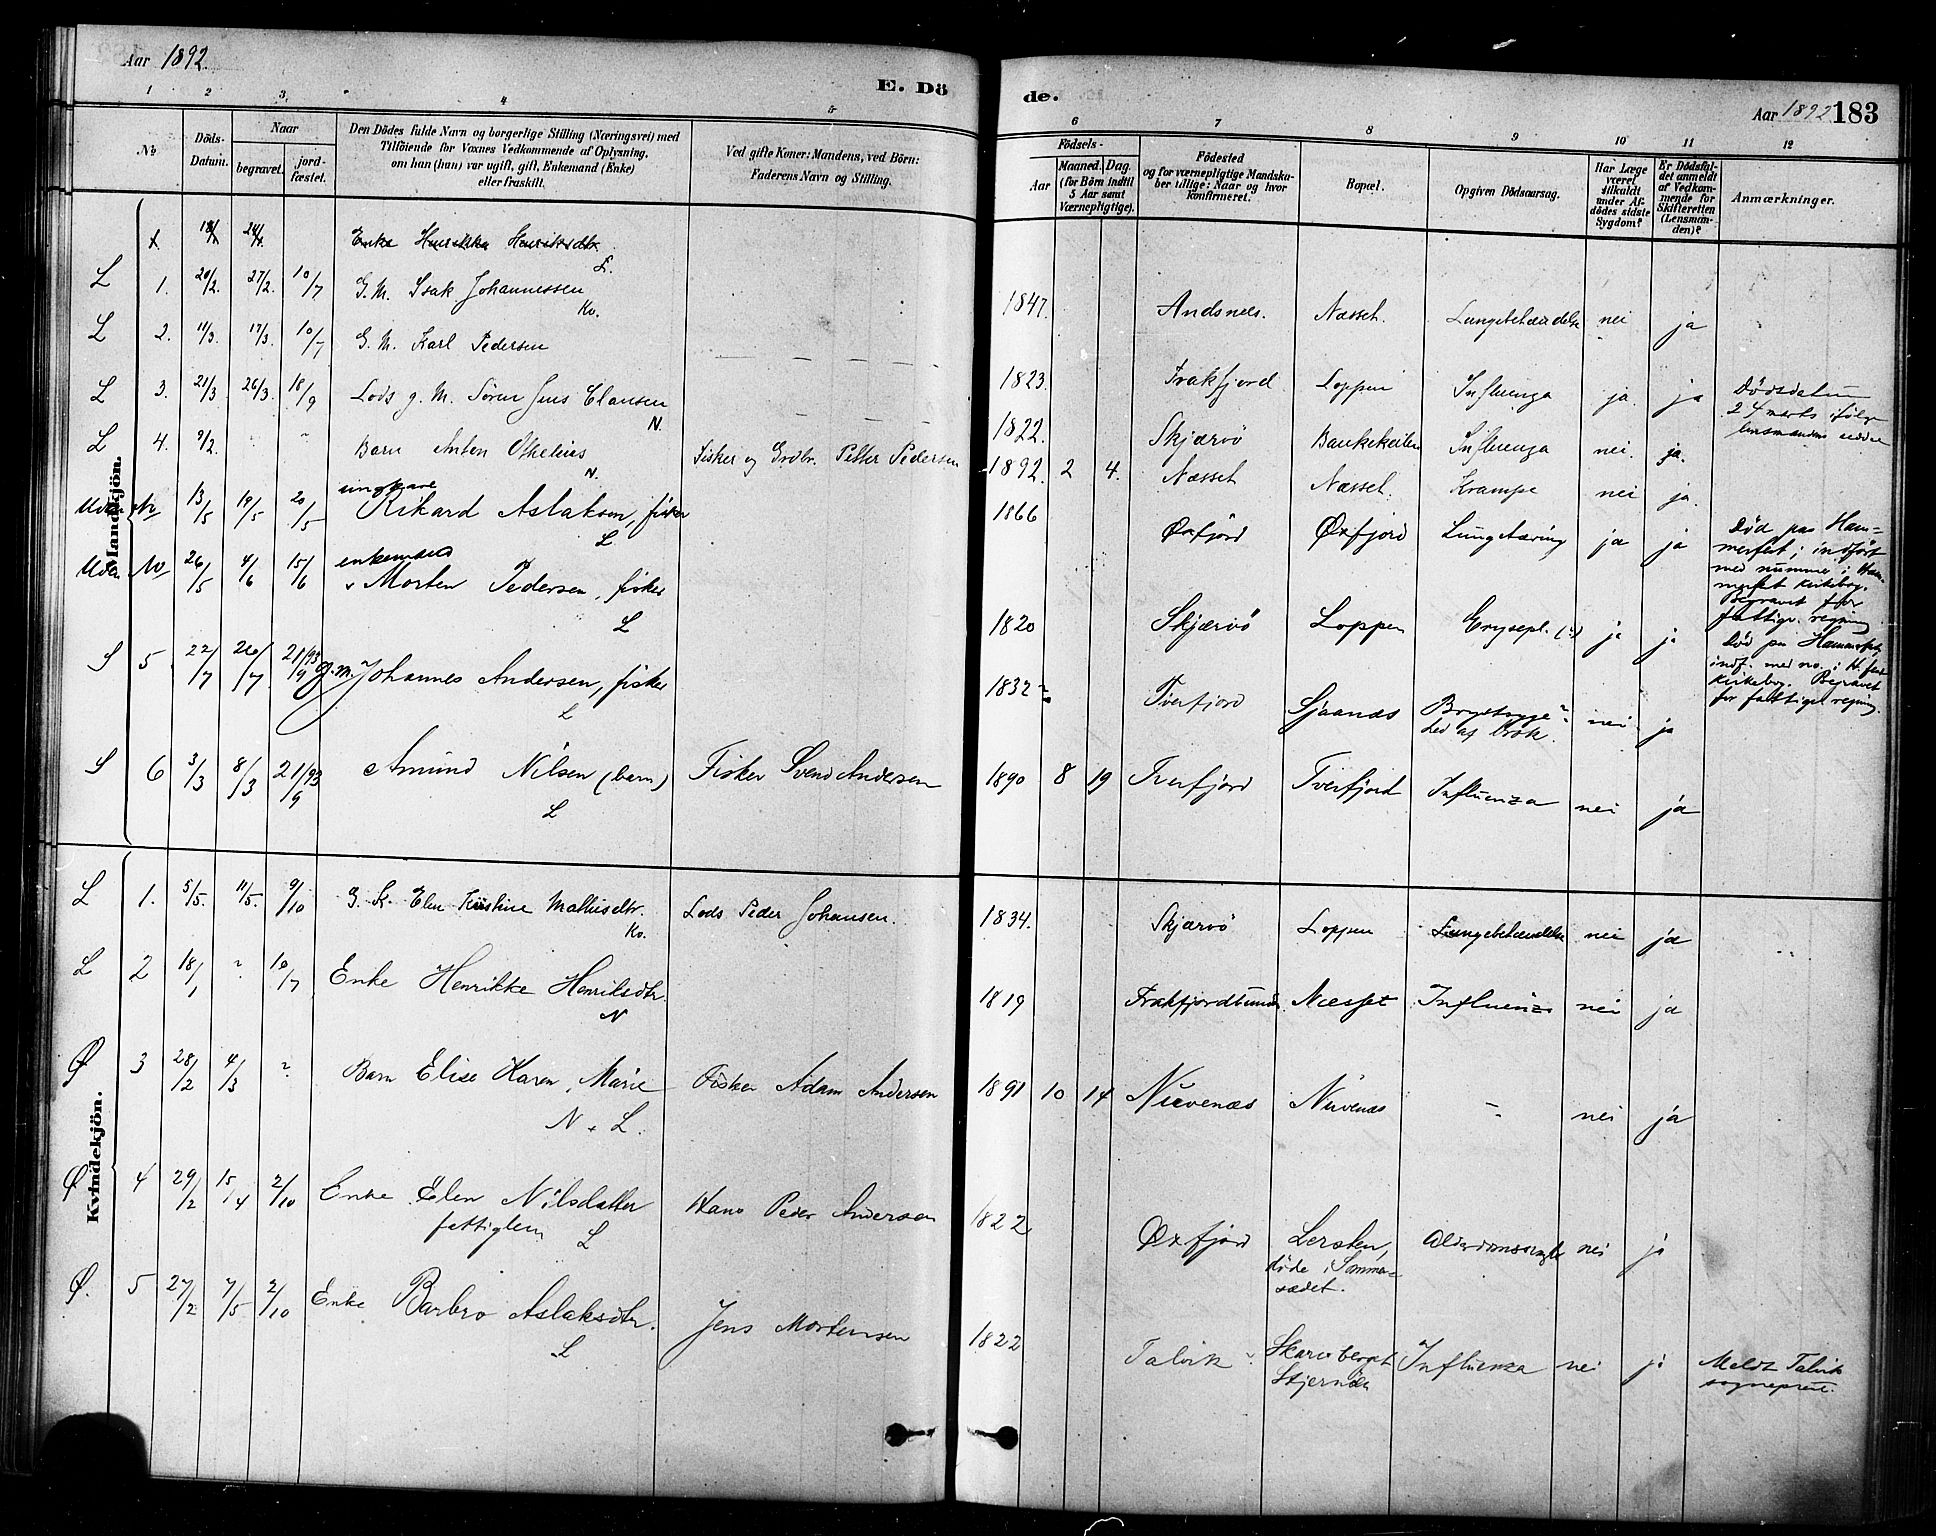 Aar 1892.
E. Dö
1 2 3. 4 5
№
Döds-Datum.
Naar
begravet.
jord-fæstet.
Den Dödes fulde Navn og borgerlige Stilling (Næringsvei) med
Tilföiende for Voxnes Vedkommende af Oplysning,
om han (hun) var ugift, gift, Enkemand (Enke)
eller fraskilt.
Ved gifte Koner: Mandens, ved Börn:
Faderens Navn og Stilling.
Mandkjön.
Enke Henrikka Henriksdtr.
L 1. 20/2. 27/2. 10/7 G.M. Isak Johannessen L.
L 2. 11/3. 17/3. 10/7 G.M. Karl Pedersen Kv.
L 3. 21/3 26/3. 18/9 Lods g. M. Sören Jens Clausen
L 4. 9/2. Barn Anton Othelius N. Fisker og Grdbr. Petter Pedersen
Uden No 13/5 19/5 20/5 ungkare Rikard Aslaksen, fisker N. L
Uden No 26/5 4/6 15/6 enkemand Morten Pedersen, fisker L
S 5 22/7 26/7 21/93 9 g.m. Johannes Andersen, fisker L
S 6 3/3 8/3 21/93 9 Amund Nilsen (barn) L Fisker Svend Andersen
Kvindekjön.
L 1. 5/5. 11/5. 9/10 G. K. Elen Kristine Mathisdtr. Kv. Lods Peder Johansen.
L 2 18/1 ? 10/7 Enke Henrikke Henriksdtr. N
Ø 3 28/2 4/3 ? Barn Elise Karen Marie N + L. Fisker Adam Andersen
Ø 4 29/2 15/4 2/10 Enke Elen Nilsdatter
fattiglem L Hans Peder Andersen
Ø. 5 27/2 7/5 2/10 Enke Barbro Aslaksdtr. L Jens Mortensen
de.
Aar 1892 183
6 7 8 9 10 11 12
Födsels-
Aar
Maaned. Dag.
(for Börn indtil
5 Aar samt
Værnepligtige).
Födested
og for værnepligtige Mandska-
ber tillige: Naar og hvor
konfirmeret.
Bopæl.
Opgiven Dödsaarsag.
Har Læge
været
tilkaldt
under Af-
dödes sidste
Sygdom?
Er Dödsfal-
det anmeldt
af Vedkom-
mende for
Skifteretten
(Lensman-
den)?
Anmærkninger.
1847. Andsnes. Næsset. Lungebetændelse nei ja
1823. Frakfjord Loppen Influenza ja. ja Dödsdatum
24 marts ifølge
lensmandens
1822. Skjærvö Influenza nei. ja.
1892. 2 4. Næsset Næsset. Krampe nei ja.
1866 Øxfjord Øxfjord Lungetæring ja ja Död paa Ham-
merfest; indført
med nummer i Ham-
merfest kirkebog.
Begravet for
fattigv. regning
1820 Skjærvö Loppen Erysepl. ja ja Död paa Hammerfest,
indf. med no. i H.fest
kirkebog. Begravet
for fattiges regning.
1832 Tverfjord Sjaanæs Brystsyge
Led af brok. nei ja
1890 8 19 Tverfjord Tverfjord Influenza nei ja
1834. Skjærvö Loppen Lungebetændelse nei ja
1819 Frakfjordbunden Næsset Influenza nei ja
1891 10 14 Nuvenæs Nuvenæs - nei ja
1822 Øxfjord Lersten,
döde i Sommer-
sædet. Alderdomssvaghed nei ja
1822 Talvik Skareberget
Stjernöen Influenza nei ja Meldt Talvik
sognepræst.